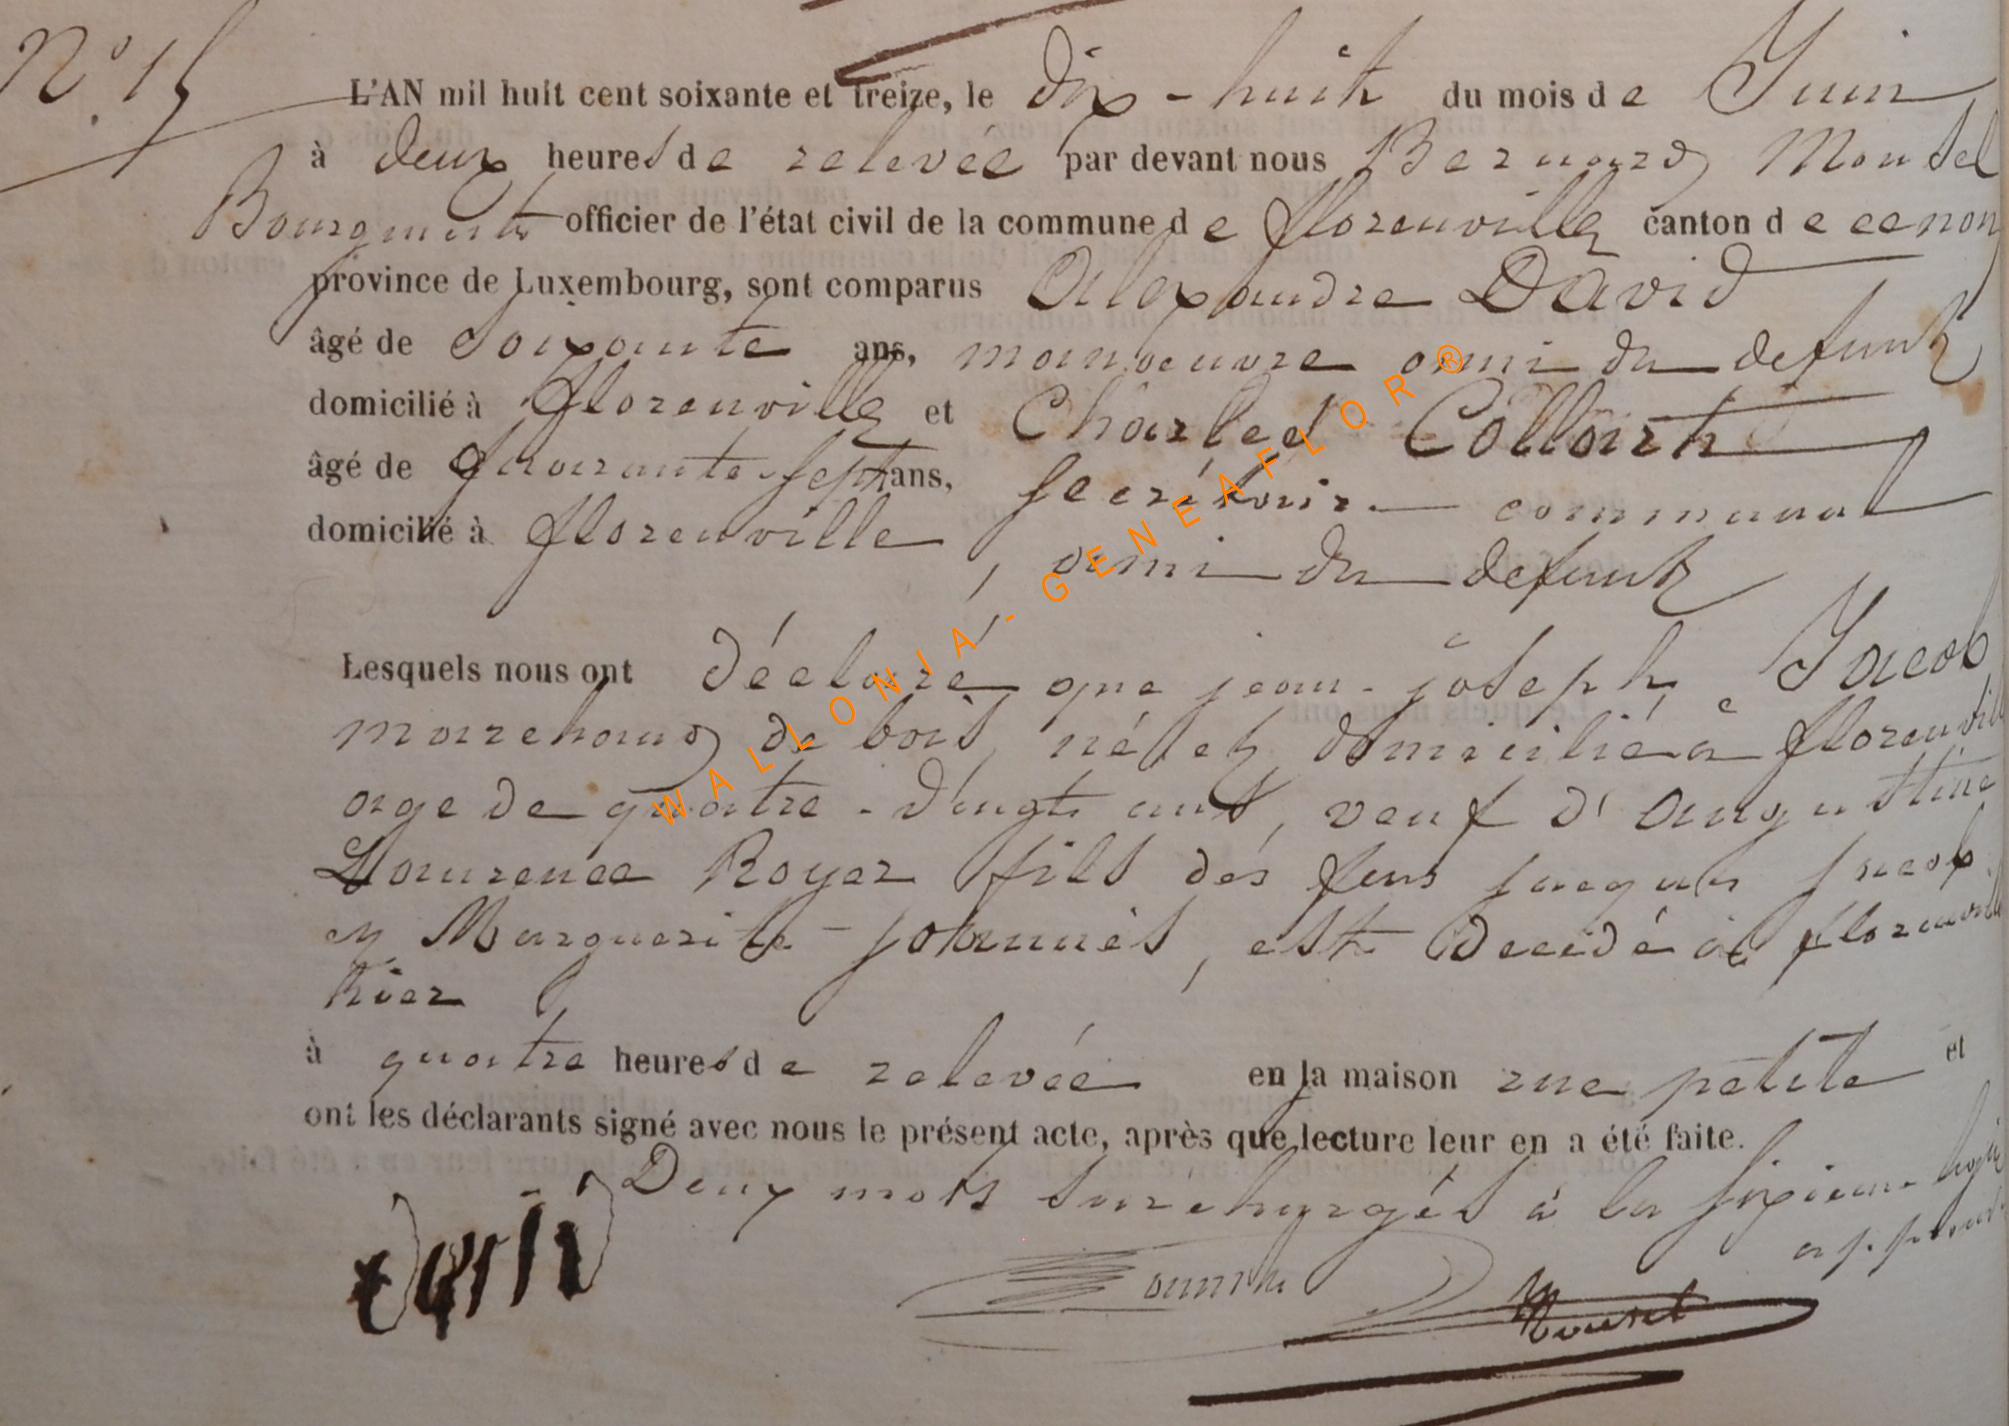 N° 15
L'AN mil huit cent soixante et treize, le Dix-huit du mois de Juin
à deux heures de relevée par devant nous Bernard Mousel
Bourgmestre officier de l'état civil de la commune de florenville canton de ce nom
province de Luxembourg, sont comparus Alexandre David
âgé de soixante ans, manoeuvre ami du defunt
domicilié à florenville et Charles Collart
âgé de quarante-sept ans, secrétaire communal
domicilié à florenville, ami du defunt
Lesquels nous ont déclaré que jean-joseph Jacob
marchand de bois, né et domicilié à florenville
age de quatre-vingt ans, veuf d'Augustine
Laurence Royer fils des feus jacques jacob
et Marguerite johannès, est decédé à florenville
hier
à quatre heures de relevée en la maison rue petite et
ont les déclarants signé avec nous le présent acte, après que lecture leur en a été faite.
Deux mots surchargés à la sixieme ligne
approuvés
David
Mousel
WALLONIA-GENEAFLOR®